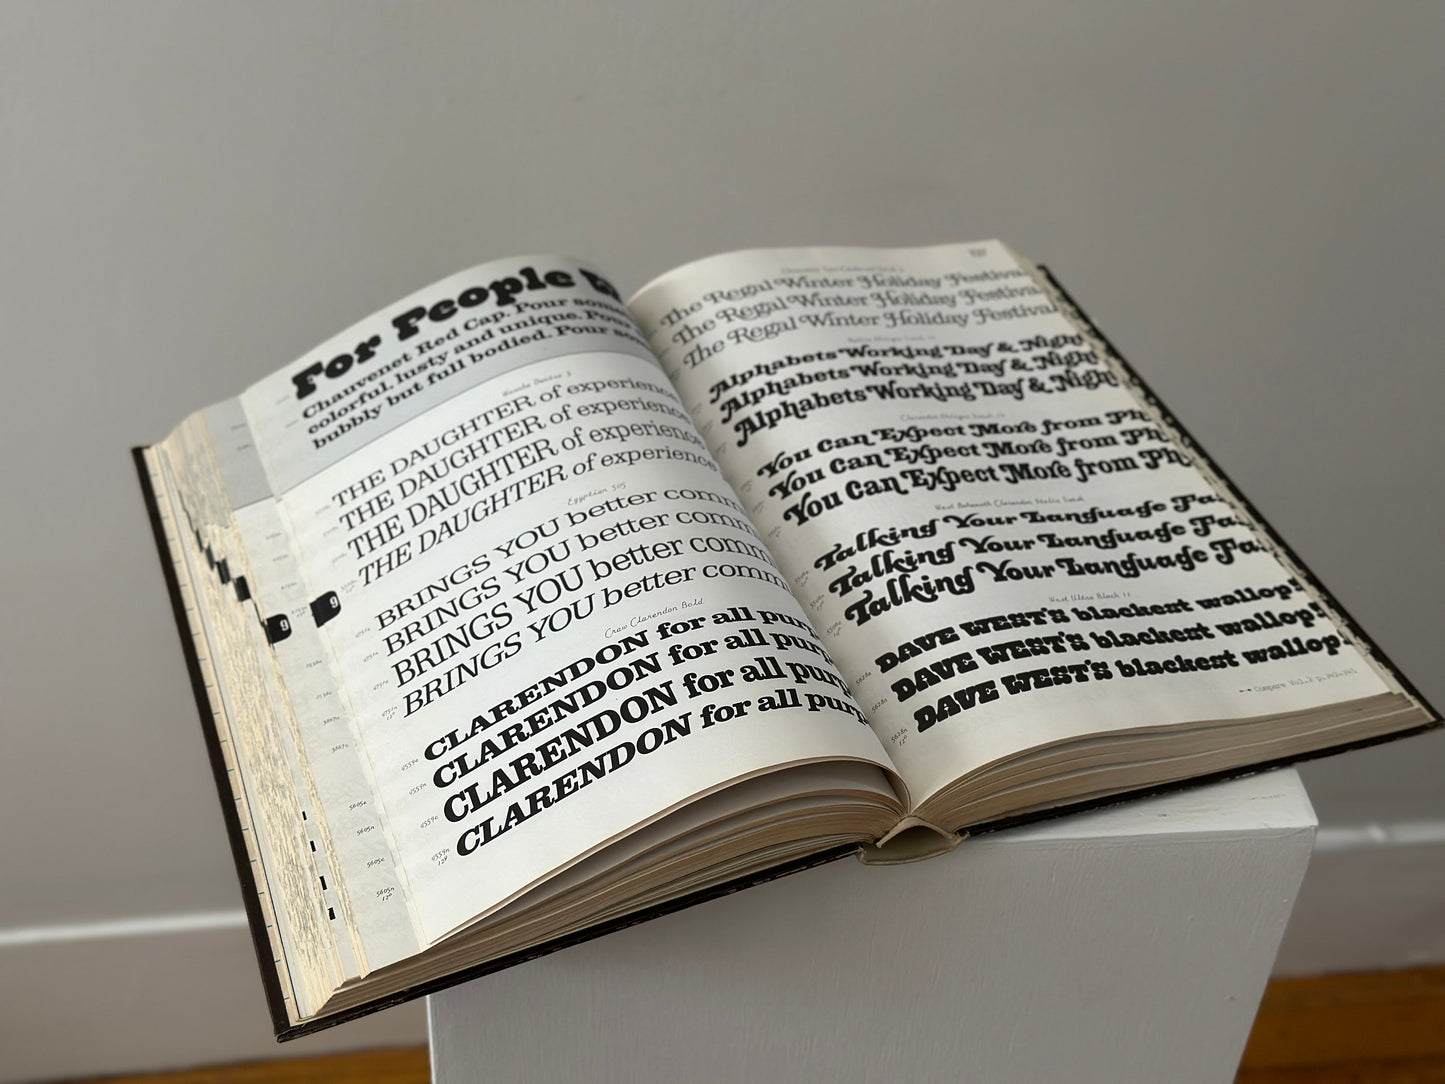 For People
Chauvenet Red Cap. Pour some
colorful, lusty and unique. Pour
bubbly but full bodied. Pour som
THE DAUGHTER of experience
THE DAUGHTER of experience
THE DAUGHTER of experience
THE DAUGHTER of experience
Egyptian 505
BRINGS YOU better comm
BRINGS YOU better comm
BRINGS YOU better comm
BRINGS YOU better comm
Craw Clarendon Bold
CLARENDON for all purp
CLARENDON for all purp
CLARENDON for all purp
CLARENDON for all purp
9
9
The Regal Winter Holiday Festival
The Regal Winter Holiday Festival
The Regal Winter Holiday Festival
Alphabets Working Day & Night
Alphabets Working Day & Night
Alphabets Working Day & Night
You Can Expect More from Ph
You Can Expect More from Ph
You Can Expect More from Ph
West Behemoth Clarendon Italic Swash
Talking Your Language Fa
Talking Your Language Fa
Talking Your Language Fa
West Ultra Black 11
DAVE WEST'S blackest wallop!
DAVE WEST'S blackest wallop!
DAVE WEST'S blackest wallop!
Compare Vol. 2